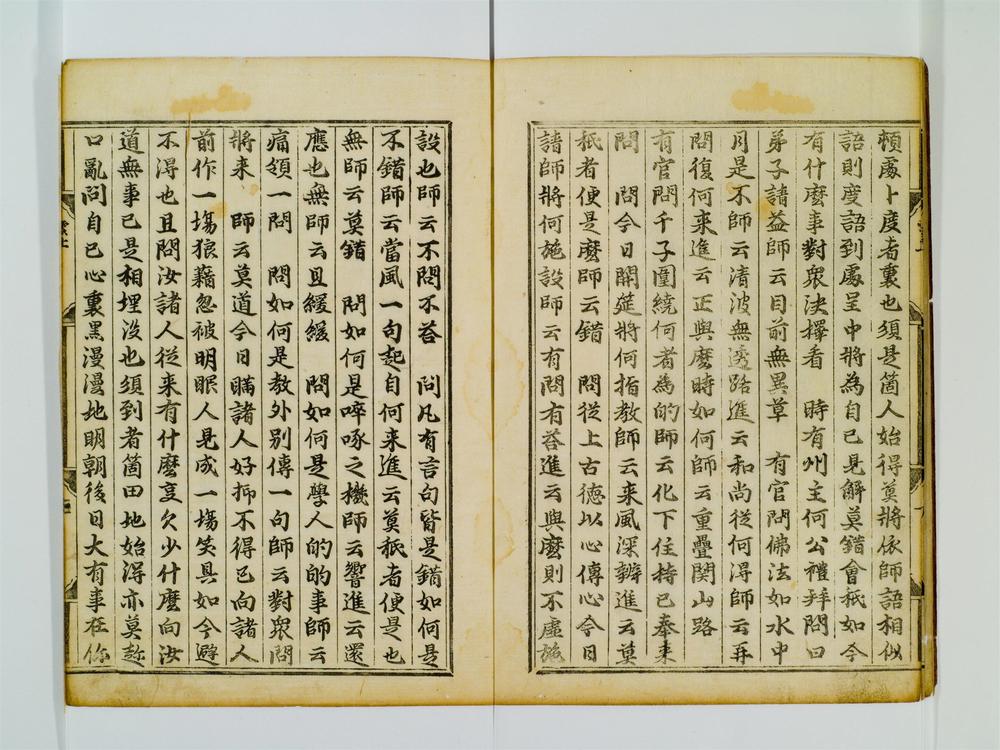 頼處卜度者裏也須是箇人始得莫將依師語相似
語則度語到處呈中將為自己見解莫錯會秖如今
有什麼事對衆決擇看　時有州主何公禮拜問曰
弟子請益師云目前無異草　有官問佛法如水中
月是不師云清波無透路進云和尚從何淂師云再
問復何来進云正與麽時如何師云重疊関山路
有官問千子圍繞何者為的師云化下住持已奉来
問　問今日開筵將何指教師云来風深辨進云莫
秖者便是麽師云錯　問從上古徳以心傳心今日
請師將何施設師云有問有荅進云與麽則不虛施
設也師云不問不荅　問凡有言句皆是錯如何是
不錯師云當風一句起自何来進云莫秖者便是也
無師云莫錯　問如何是啐啄之機師云響進云還
應也無師云且緩緩　問如何是學人的的事師云
痛領一問　問如何是教外別傳一句師云對衆問
將来　師云莫道今日瞞諸人好抑不得已向諸人
前作一塲狼藉忽被明眼人見成一塲笑具如今避
不淂也且問汝諸人從来有什麽事欠少什麽向汝
道無事已是相埋没也須到者箇田地始淂亦莫趂
口亂問自己心裏黑漫漫地明朝後日大有事在你